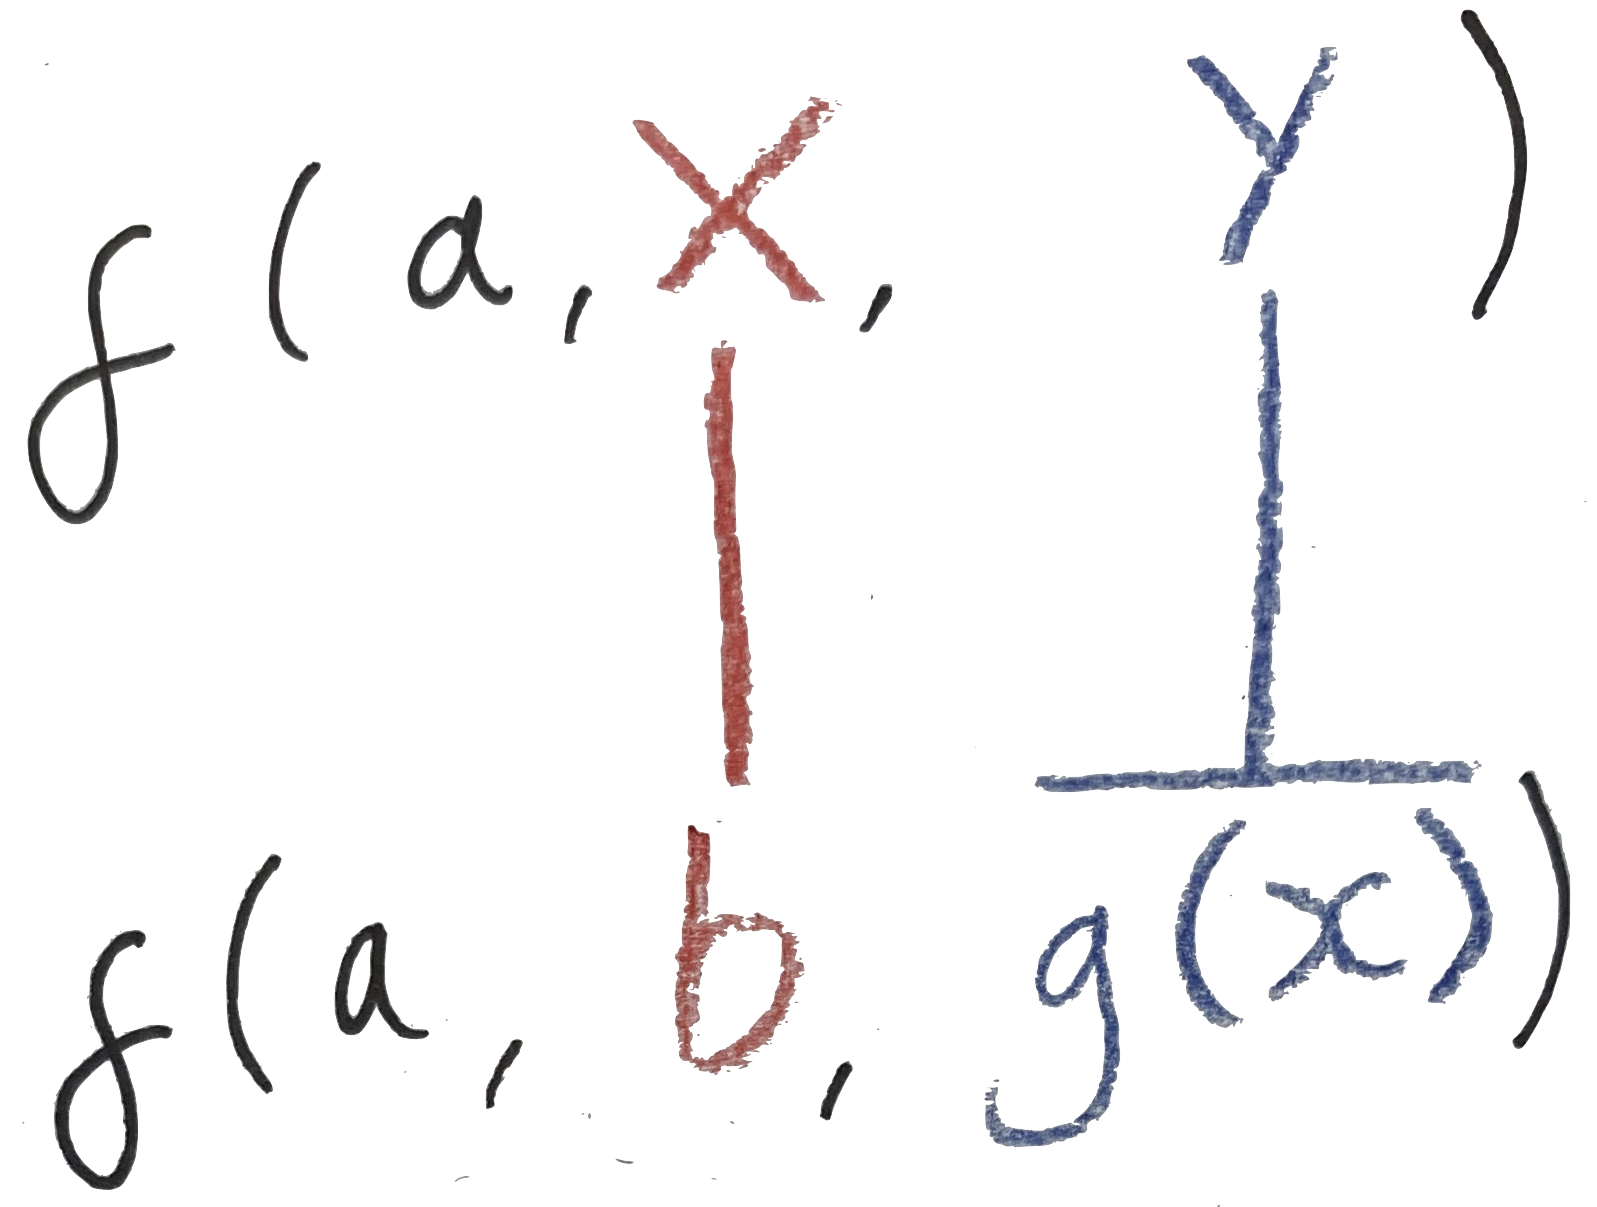 f(a, X, Y)
f(a, b, g(x))